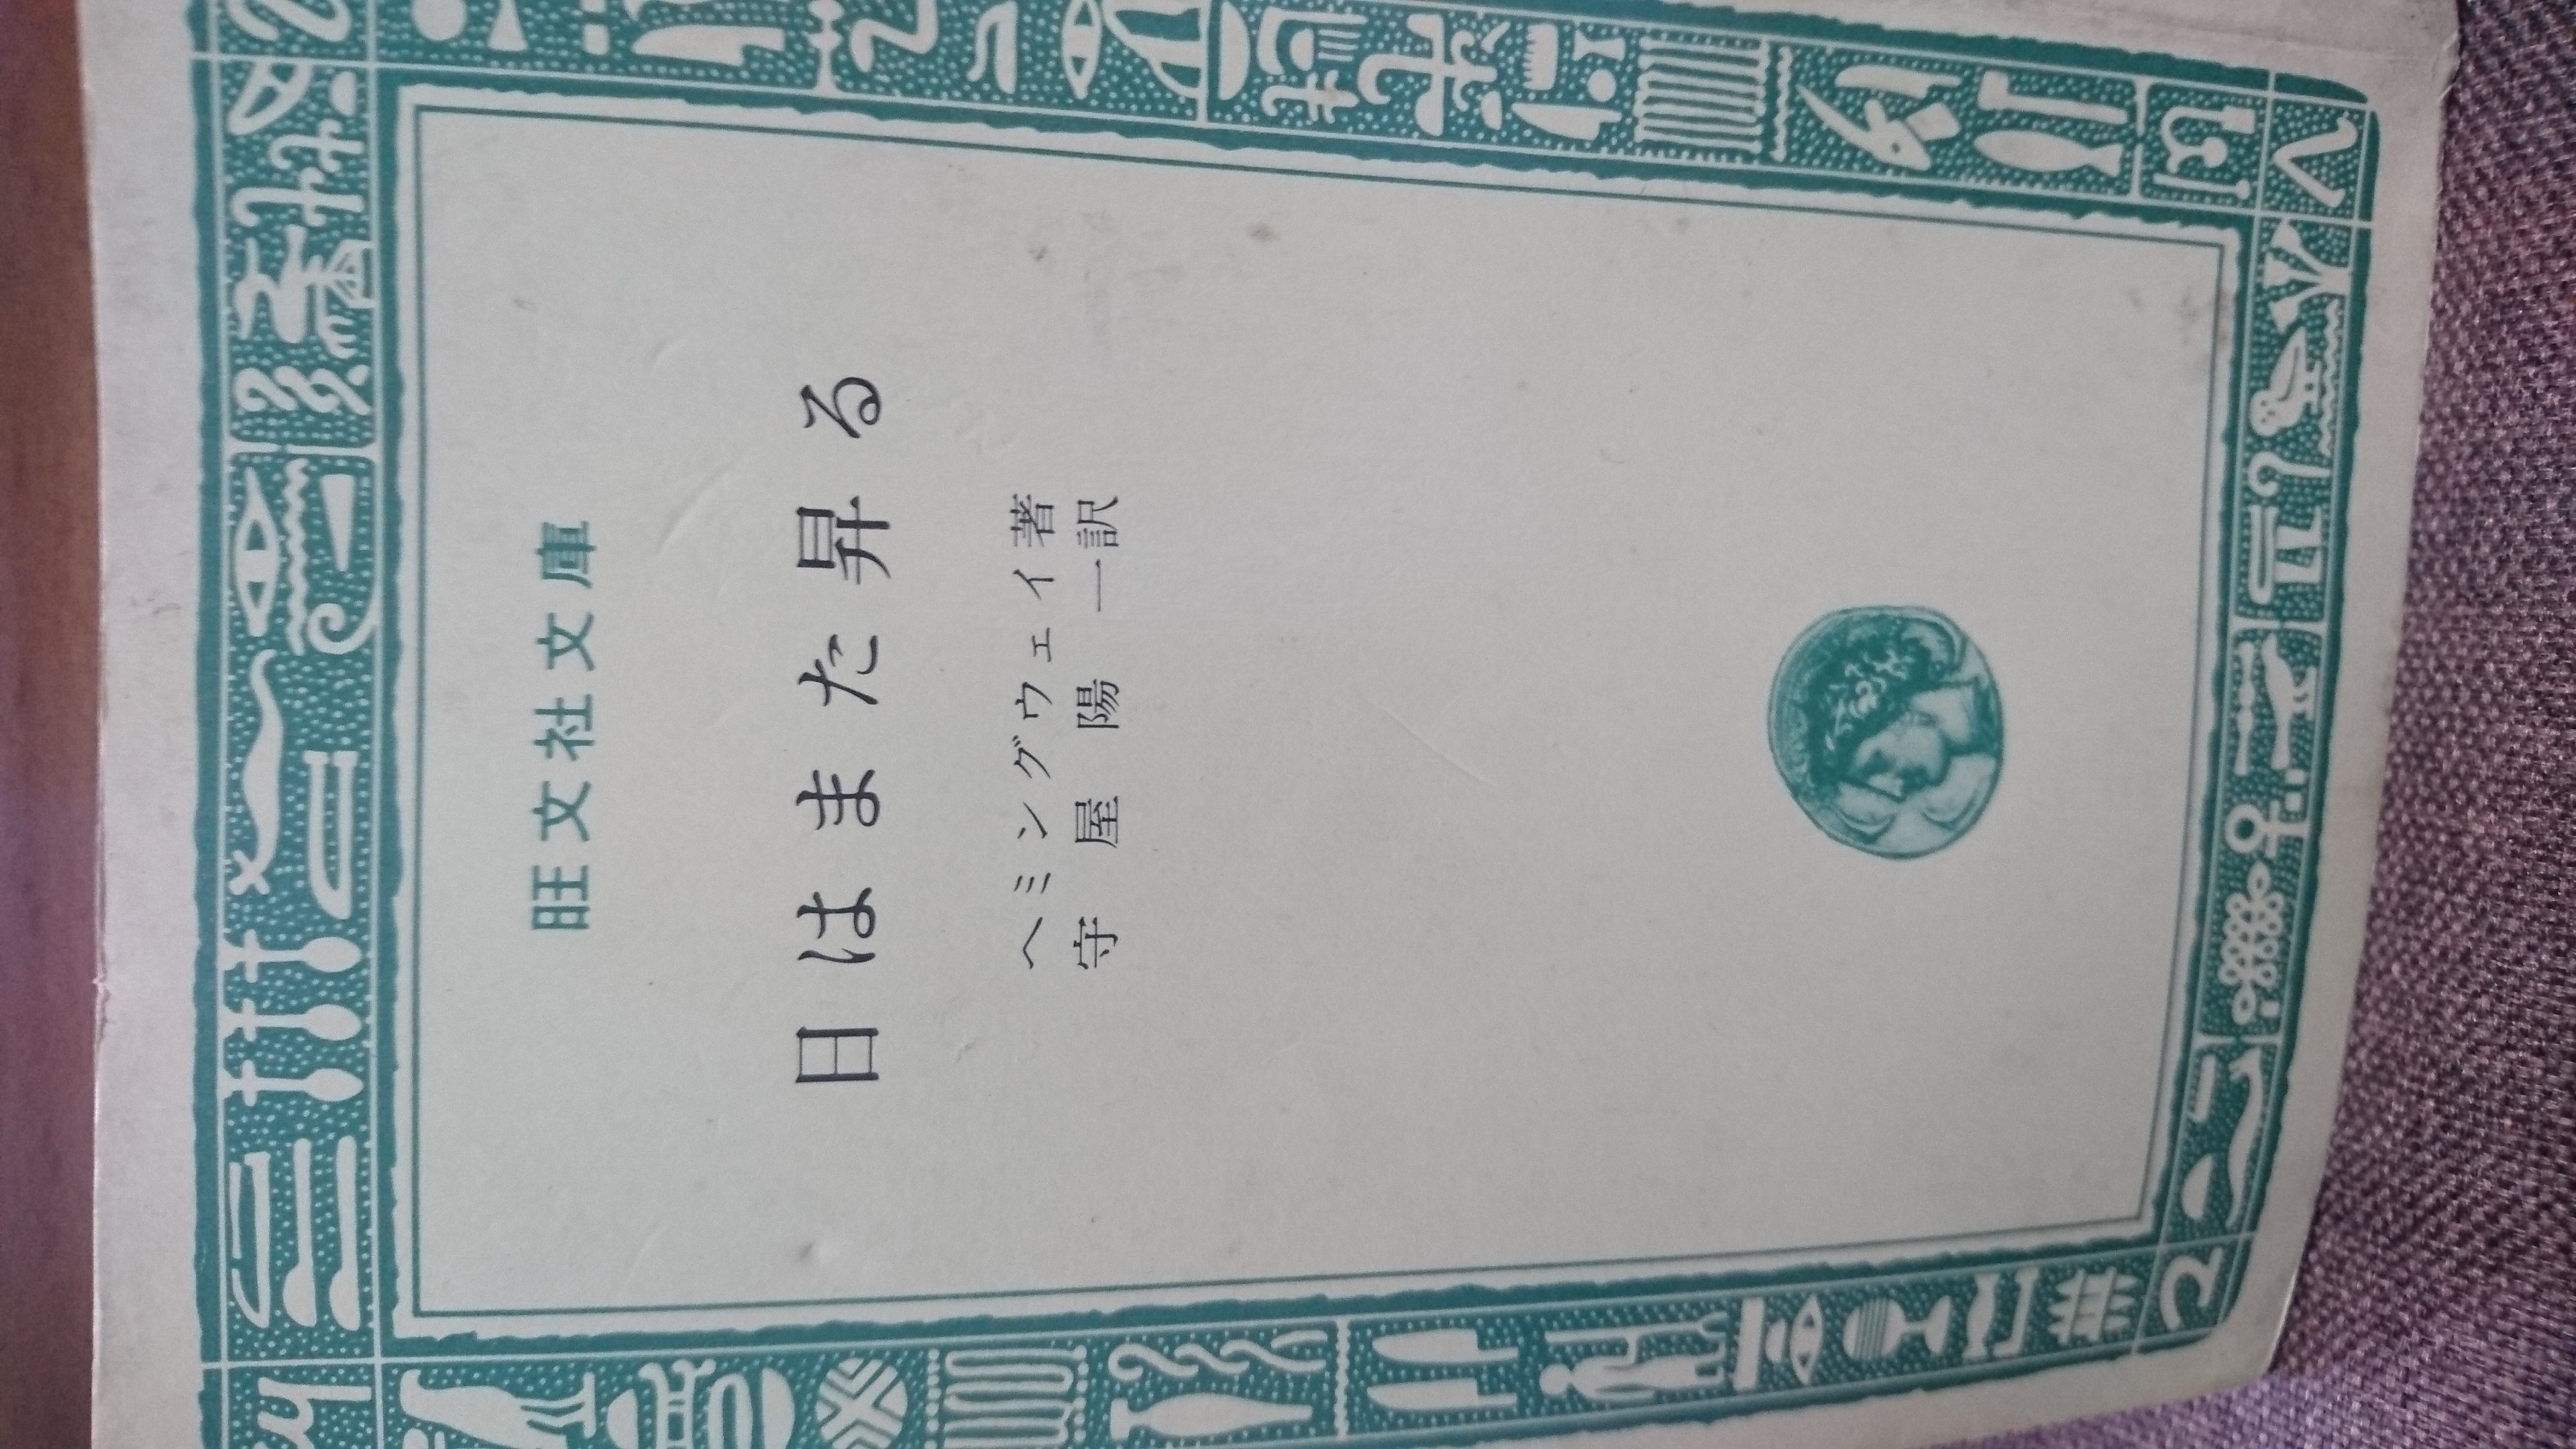 旺文社文庫
日はまた昇る
ヘミングウェイ著
守屋陽一訳